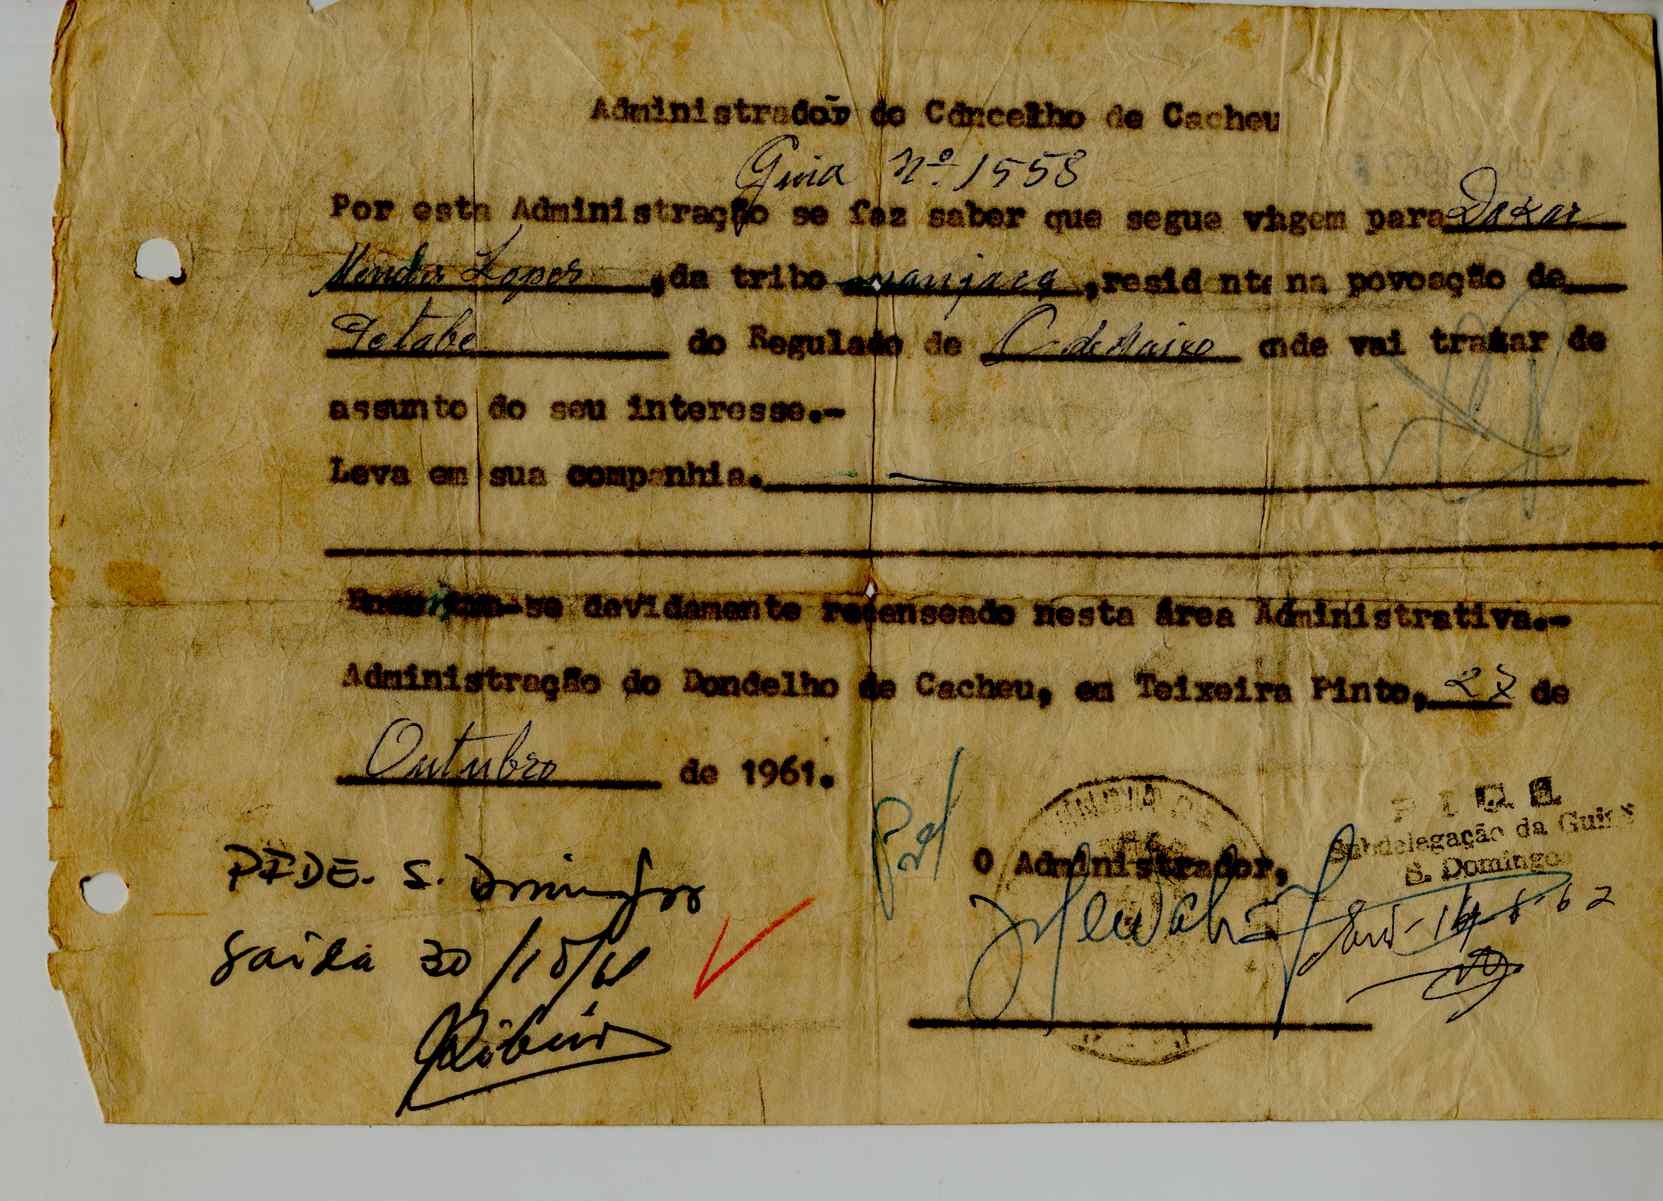 Administrador do Concelho de Cacheu
Guia Nº. 1558
Por esta Administração se faz saber que segue viagem para Dakar
Mendes Lopes, da tribo manjaca, residente na povoação de
Petabe do Regulado de C. de Baixo onde vai tratar de
assunto do seu interesse.-
Leva em sua companhia.
-se devidamente recenseado nesta área Administrativa.-
Administração do Dondelho de Cacheu, em Teixeira Pinto, 27 de
Outubro de 1961.
P I D E
Subdelegação da Guiné
S. Domingos
O Administrador,
PIDE. S. Domingos
Saída 30/10/61
Ribeiro